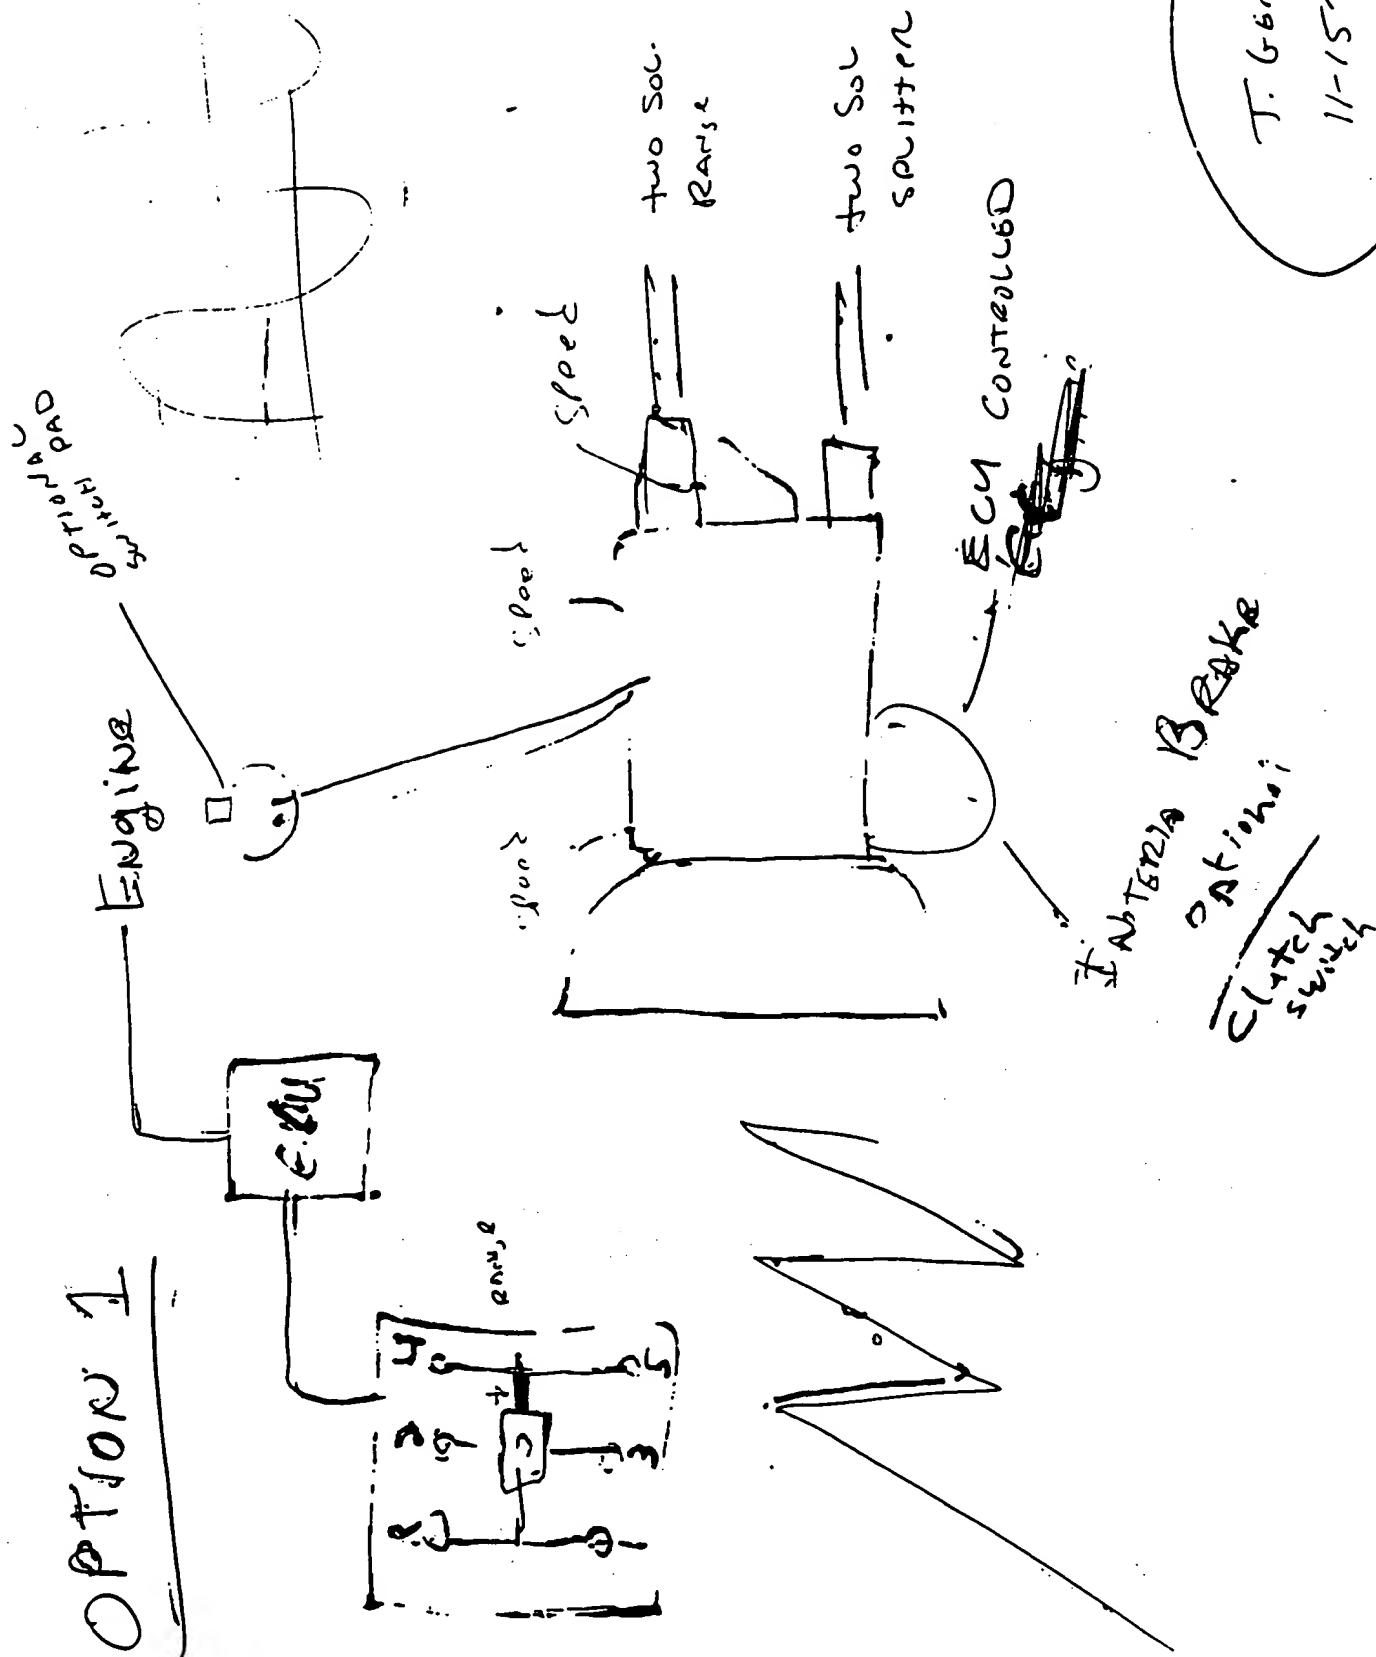 OPTION 1
Engine
OPTIONAL
SWITCH PAD
E.C.U.
R 2 4
1 3 5
RANGE
Speed
Speed
two SOL.
RANGE
two SOL
SPLITTER
ECU CONTROLLED
INTERIA BRAKE
OPtional
Clutch
switch
11-15-